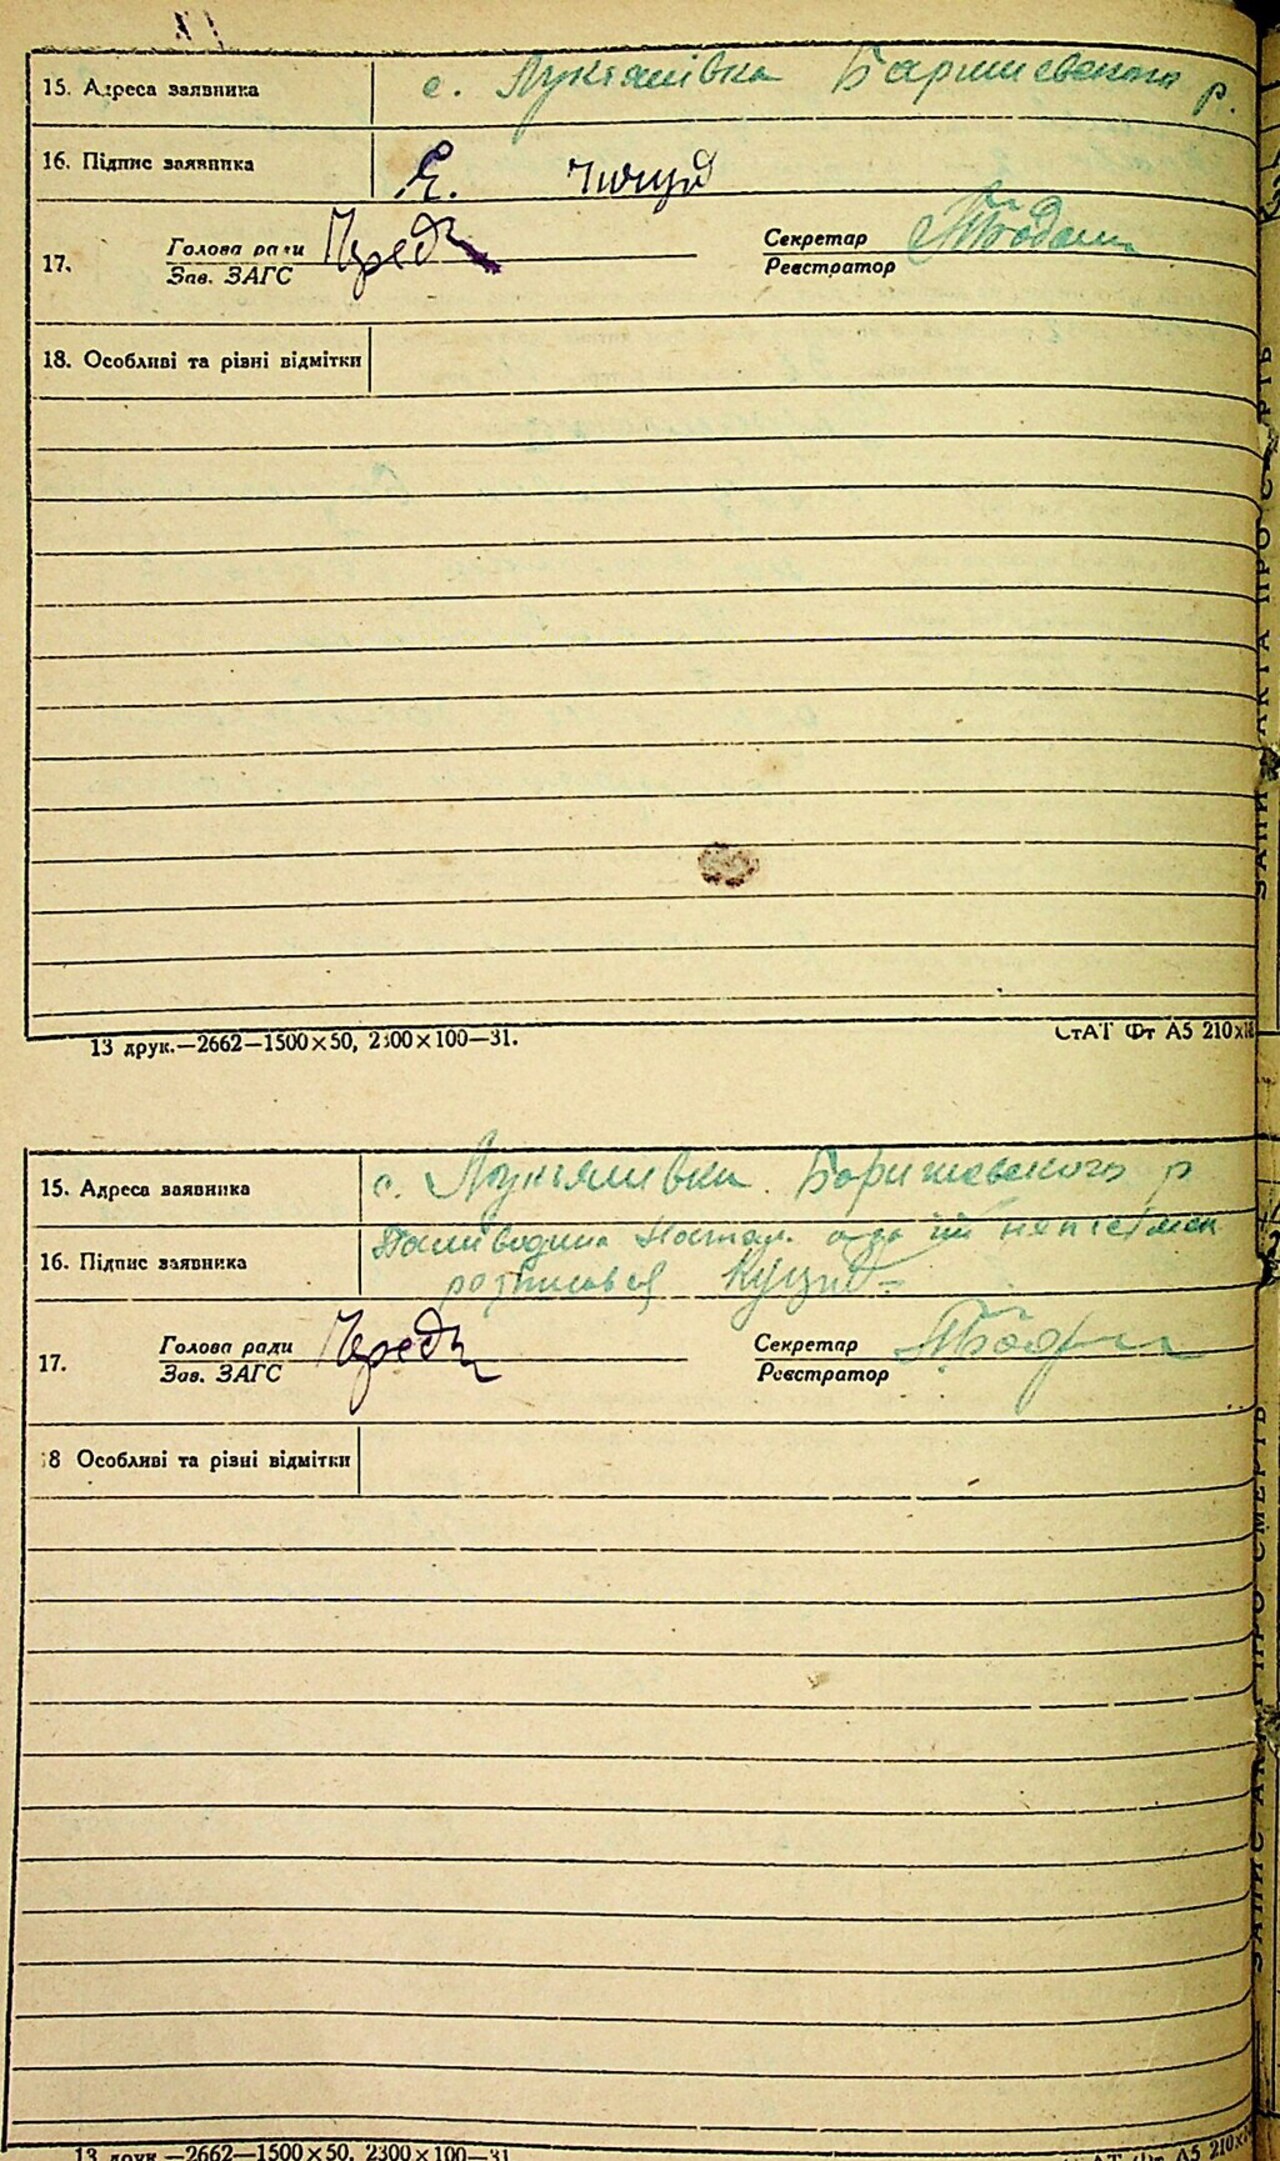 15. Адреса заявника с. Лукянівка Баришевського р.
16. Підпис заявника Я.
Голова ради Секретар
17.
Зав. ЗАГС Реєстратор
18. Особливі та різні відмітки
13 друк.—2662—1500×50, 2300×100—31. СтАТ Фт А5 210х
ЗАПИС АКТА ПРО СМЕРТЬ
15. Адреса заявника с. Лукьянивка Баришевського р
16. Підпис заявника Паливодина а за її неписьмен
розписався Куцид
Голова ради Секретар
17.
Зав. ЗАГС Реєстратор
8 Особливі та різні відмітки
13 друк.—2662—1500×50, 2300×100—31 СтАТ Фт А5 210х
ЗАПИС АКТА ПРО СМЕРТЬ